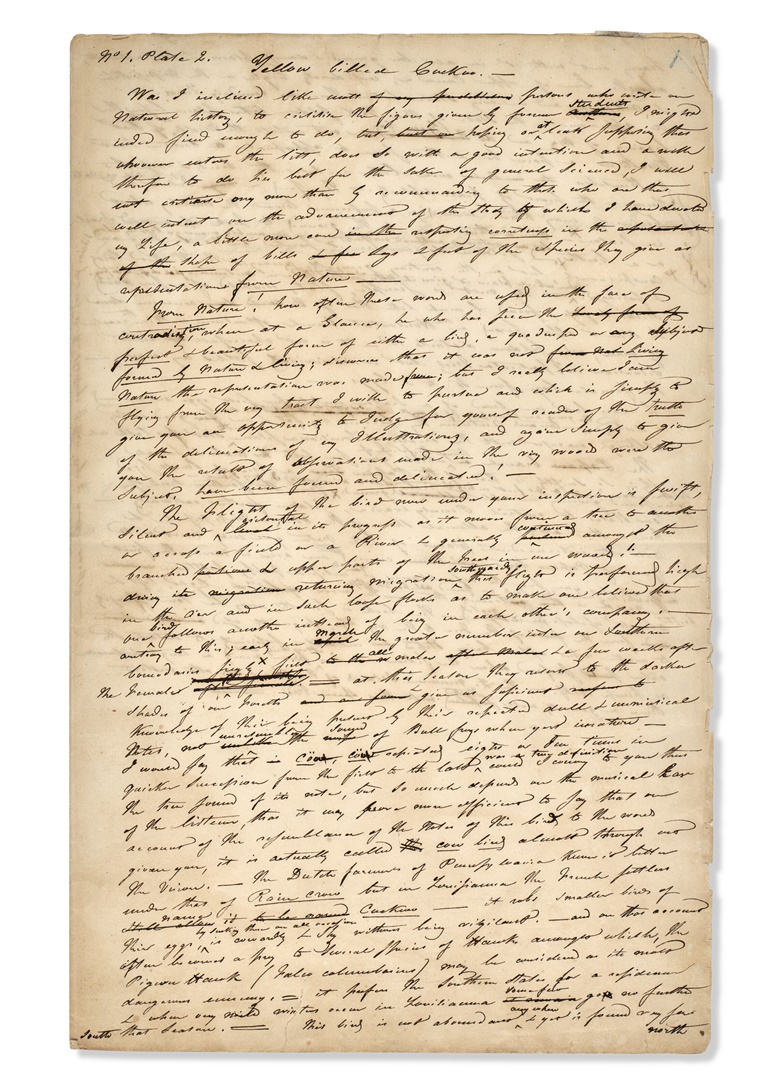 No 1. Plate 2.
Yellow billed Cuckoo. —
Was I inclined like most of my predecessors persons who write on
Natural history, to criticise the figures given by former authors students, I might
indeed find enough to do, but but on hoping or at least supposing that
whoever enters the list, does so with a good intention and a wish
therefor to do his best for the sake of general Science, I will
not criticise any more than by recommanding to those who are thus
well intent on the advancement of the Study to which I have devoted
my Life, a little more care in the respecting correctness in the
of the shape of bills & feet legs & feet of the Species they give as
representations from Nature —
From Nature! how often these words are used in the face of
contradiction, when at a Glance, he who has seen the lovely form of
perfect & beautiful form of either a bird, a quadruped or any subject
formed by Nature & living; discovers that it was not from Not Living
Nature the representation was made from; but I really believe I am
flying from the very tract I wish to pursue and which is simply to
give you an opportunity to Judge for yourself reader of the truth
of the delineations of my Illustrations, and again simply to give
you the results of observations made in the very woods were the
Subjects have been found and delineated! —
The Flight of the bird now under your inspection is swift,
Silent and level horisontal in its progress as it moves from a tree to another
or across a field or a River & generally continued amongst the
branches portions & upper parts of the trees in our woods! —
during its migration returning migration southwardly this flight is performed high
in the air and in such loose flocks as to make one believe that
one bird follows another instead of being in each other's company. —
early in april March the greater number enter our Southern
boundaries singly first to the all males after Males & a few weeks after
the females — at this Season they resort to the darker
shades of our forests and are found give us suficient
Knowledge of their being present by their repeated dull & unmusical
Notes, not unresembling the sounds of Bull frogs when
I would say that is cŏŏ, cŏŏ repeated eight or Ten times in
quicker succession from the first to the last was a true definition could I convey to you thus
the true sound of its note, but so much depends on the musical Ear
of the listener, that it may prove more efficient to say that on
account of the resemblance of the Notes of this bird to the word
given you, it is actually called the cow bird almost through out
the Union. — The Dutch farmers of Pennsylvania know it better
under that of Rain crow but in Louisianna the French settlers
name it Cuckoo — it robs smaller birds of
their eggs by sucking them on all occasion is cowardly & shy without being vigilant. — and on this account
often becomes a prey to Several species of Hawk amongst which, the
Pigeon Hawk (Falco columbarius) may be considered as its most
dangerous ennemy. = it prefers the Southern States for a residence
& when very mild winters occur in Louisianna some few it remain go no further
South that Season. = This bird is not abundant any where & yet is found very far
north